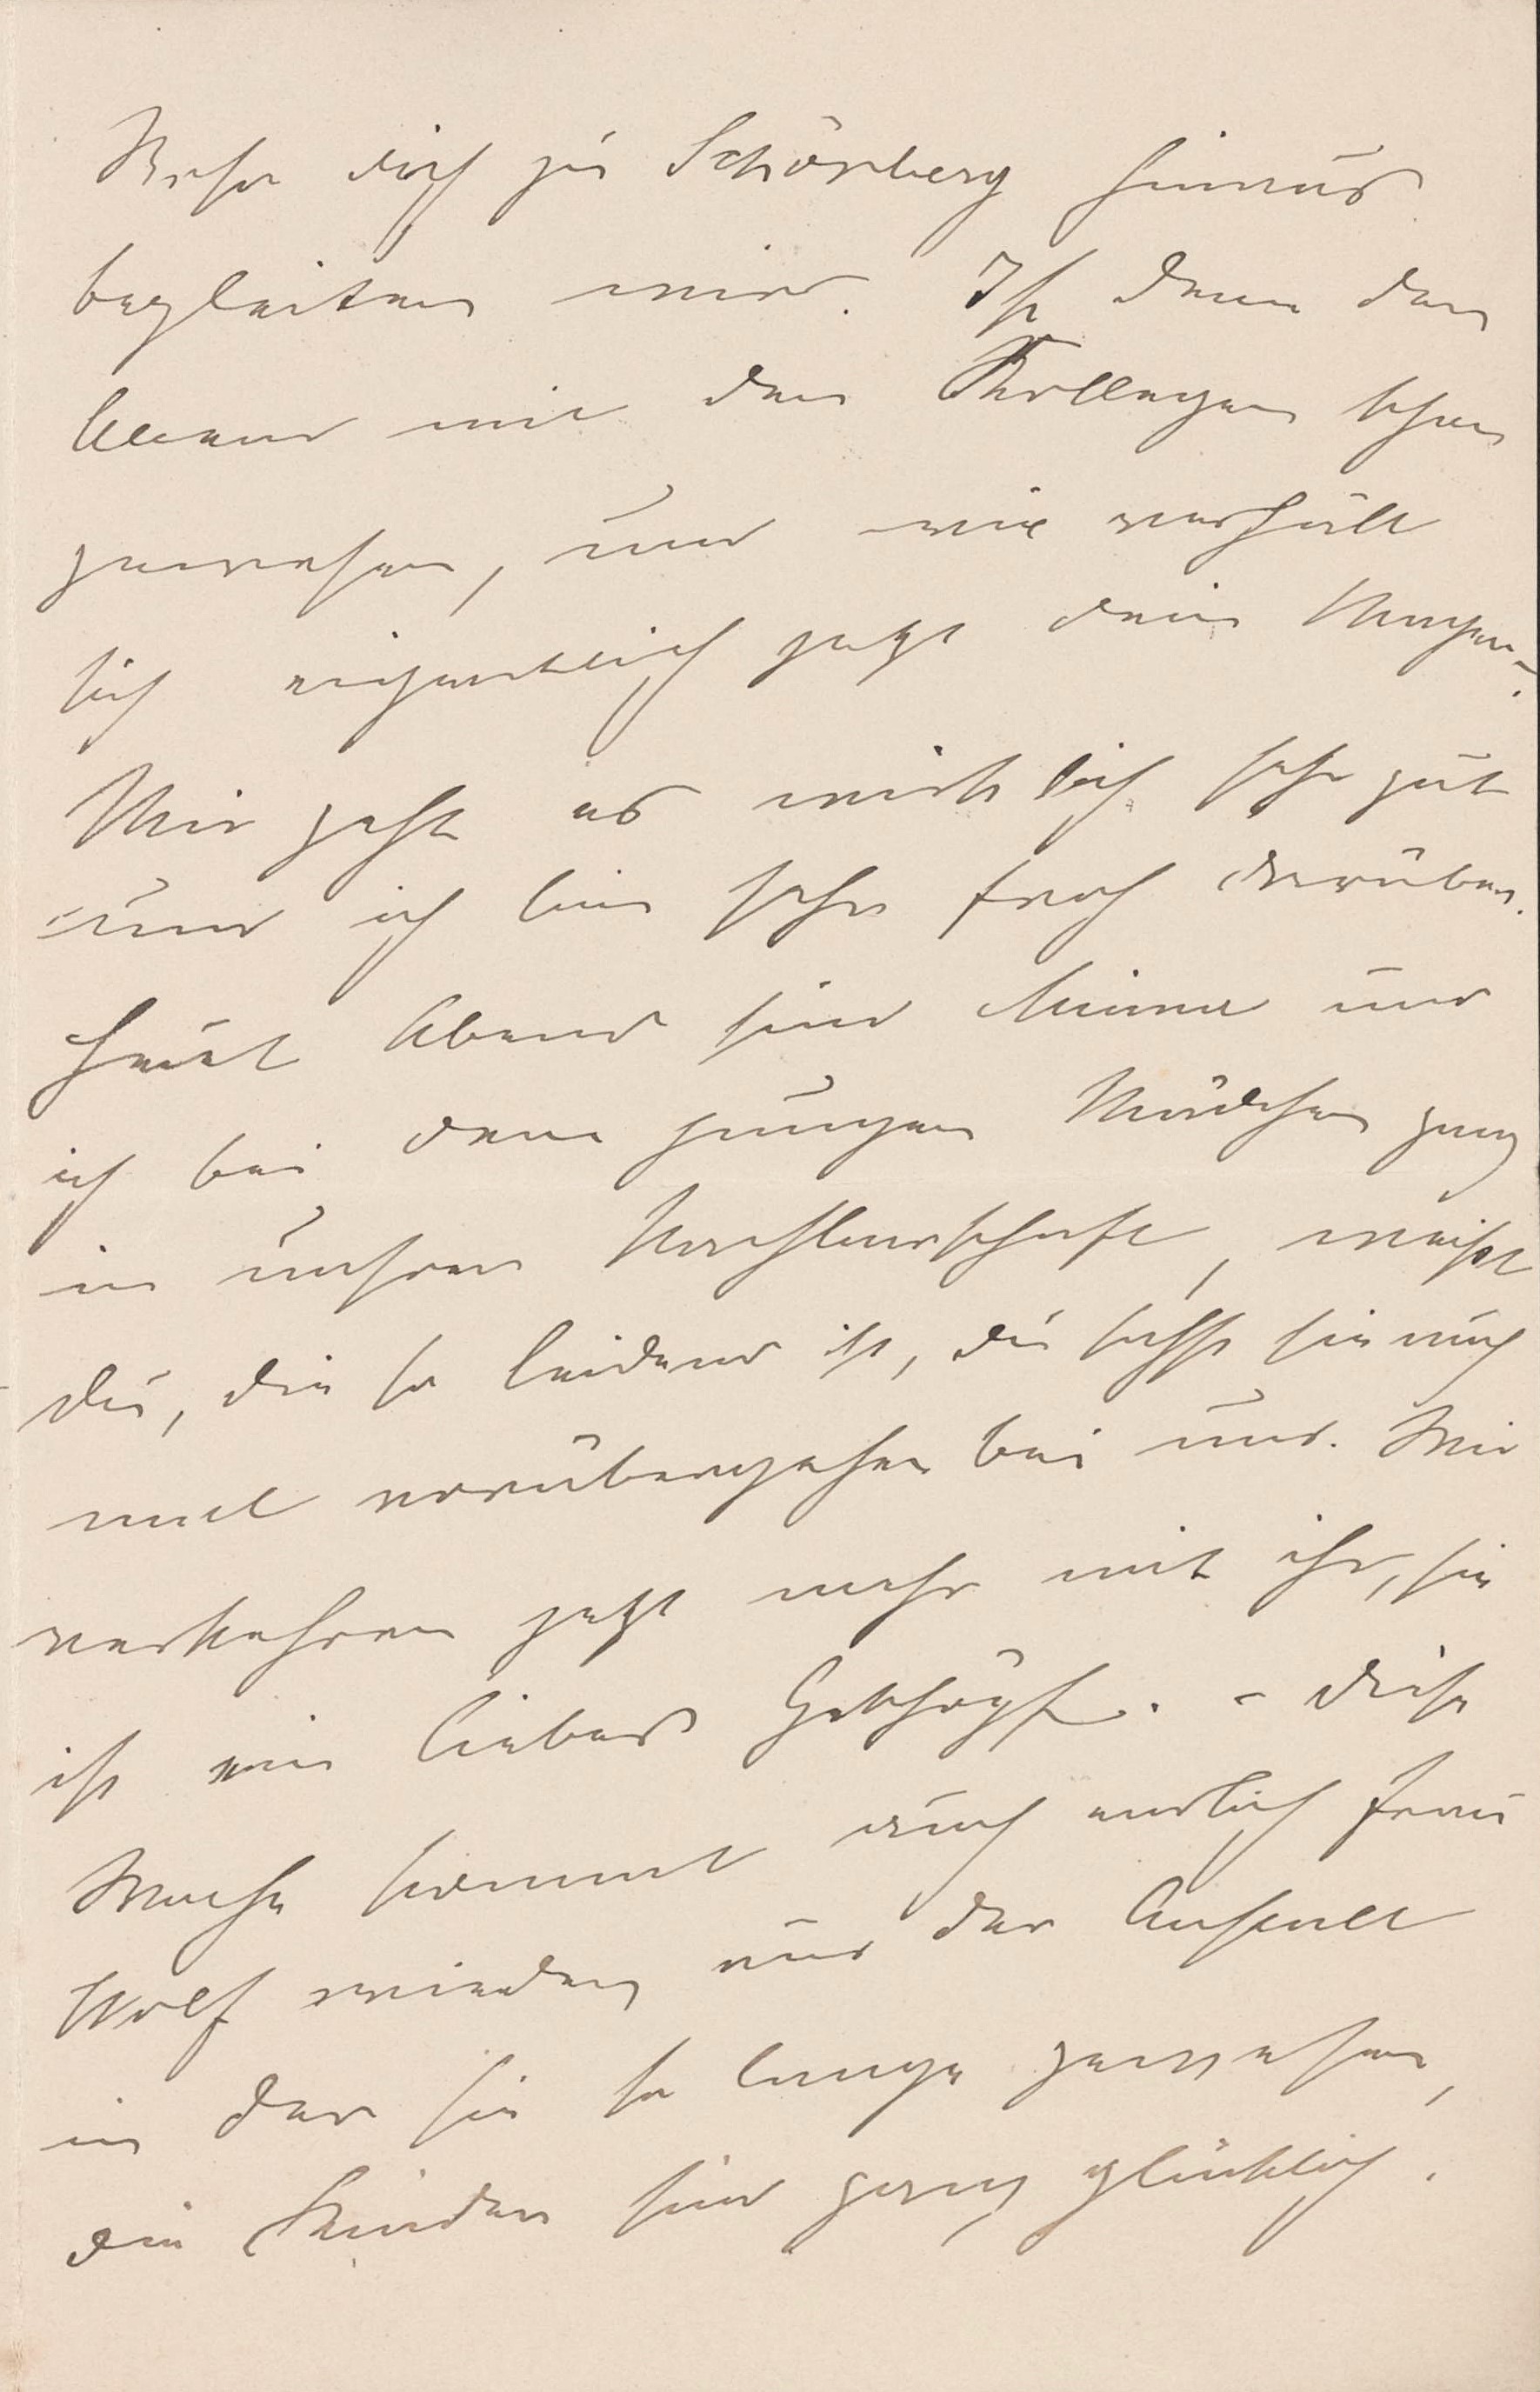 Weise dich zu Schönberg hinaus
begleiten wird. Ist denn der
Abend mit den Kollegen schon
gewesen, und wie verhält
sich eigentlich jetzt dein Magen.
Mir geht es wirklich sehr gut
und ich bin sehr froh darüber.
Heut Abend sind Minna und
ich bei dem jungen Mädchen ganz
in unsrer Nachbarschaft, weißt
du, die so leidend ist, du sahst sie auch
mal vorübergehen bei uns. Wir
verkehren jetzt mehr mit ihr, sie
ist ein liebes Geschöpf. - Diese
Woche kommt auch endlich Frau
Wolf wieder aus der Anstalt
in der sie so lange gewesen,
die Kinder sind ganz glücklich.